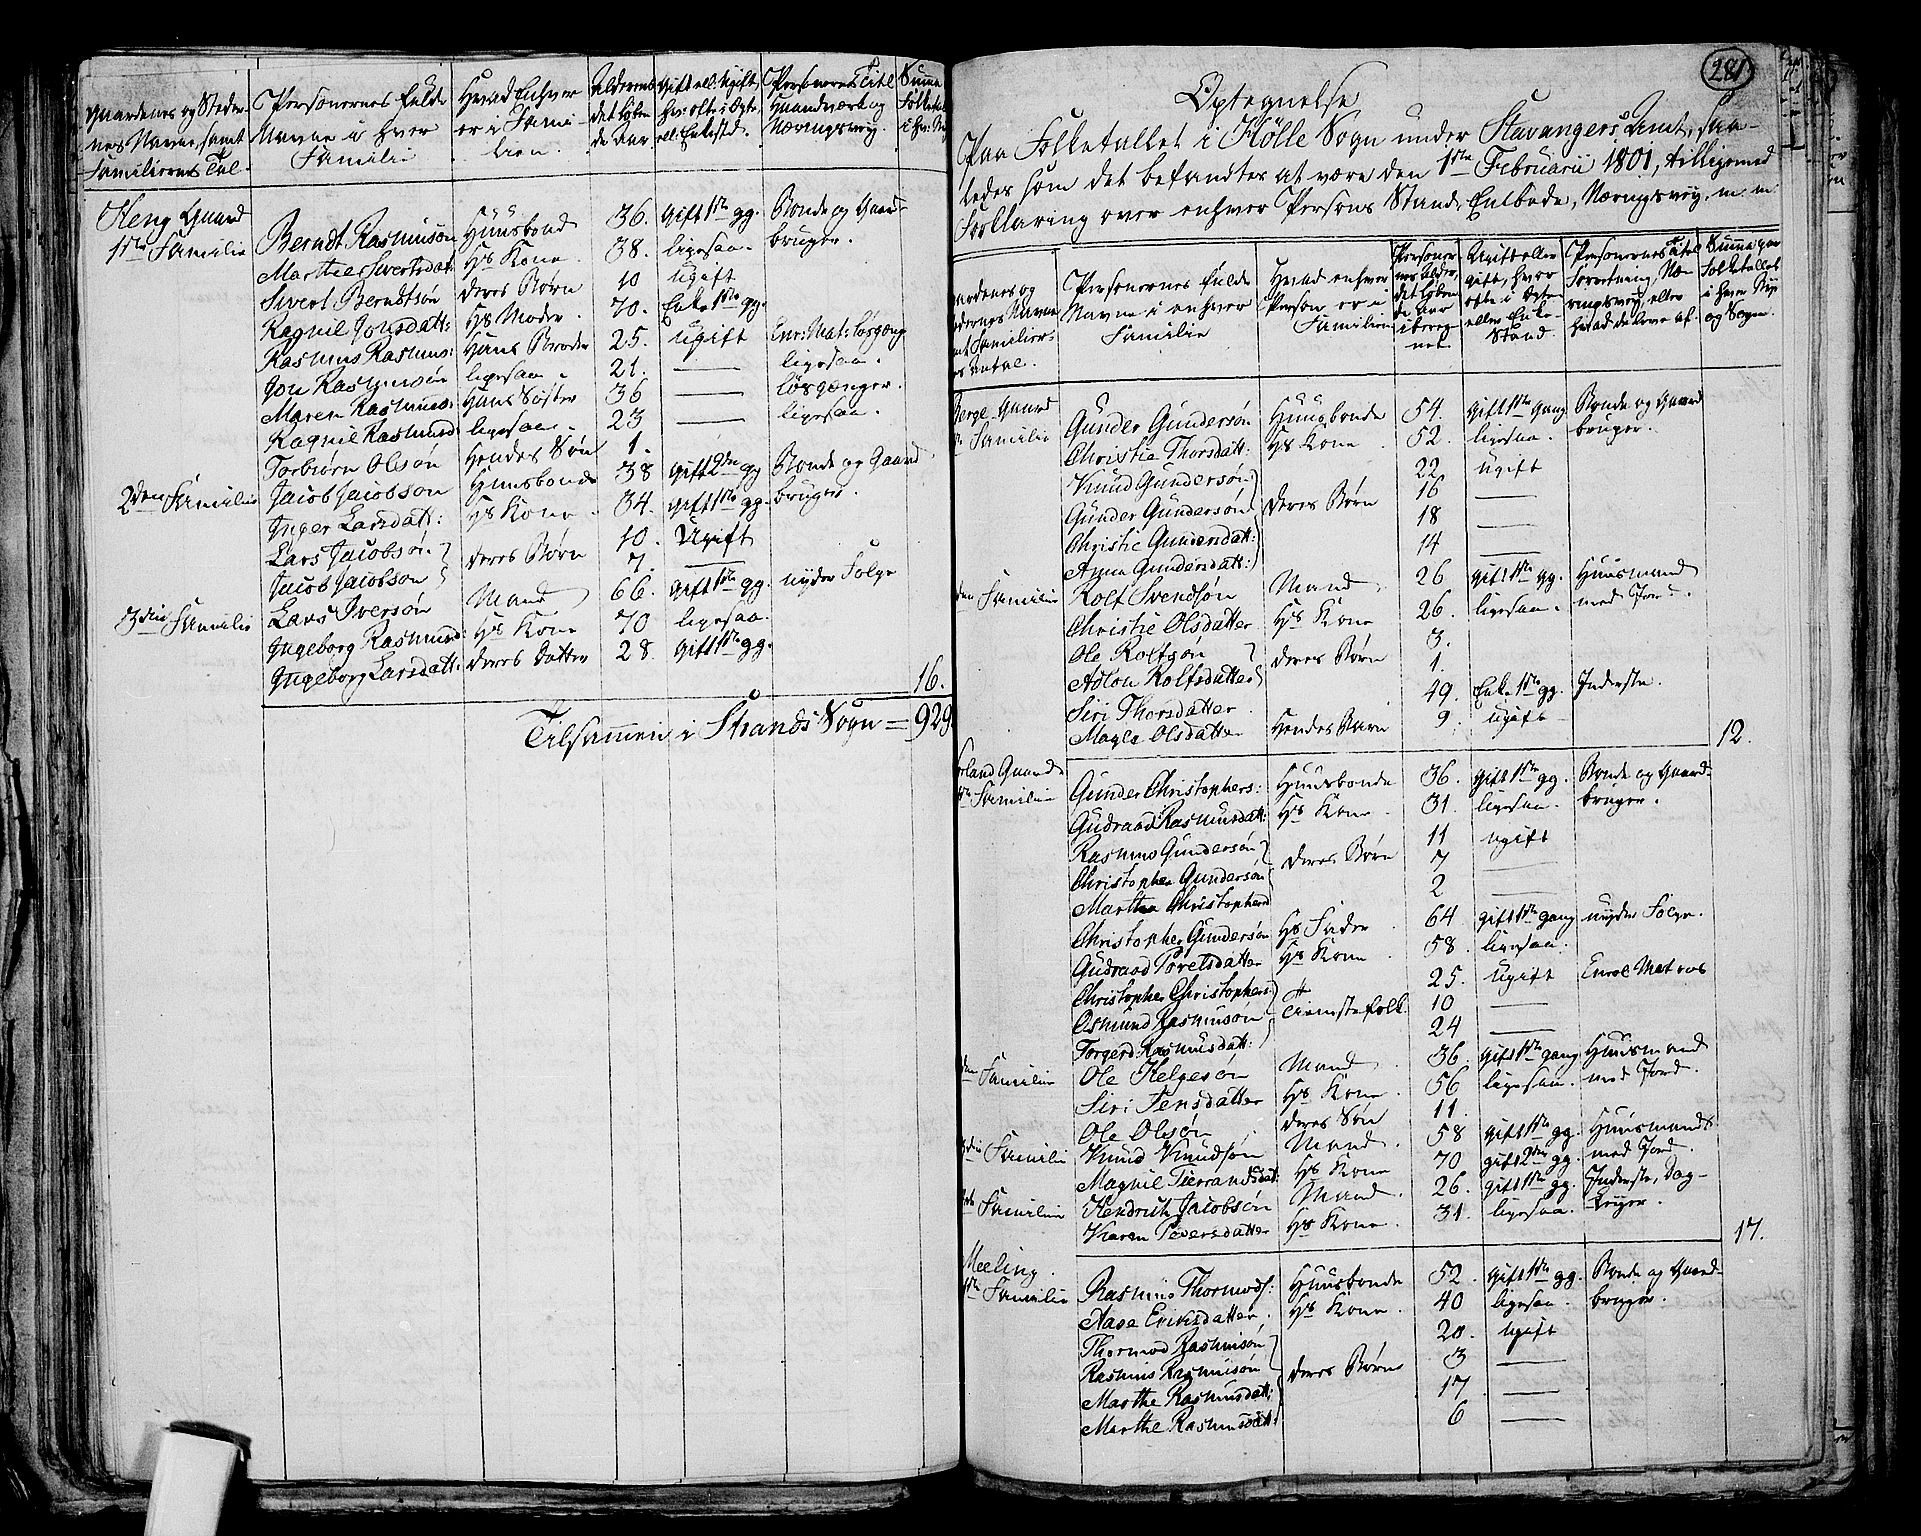 Gaardenes og Steder-
nes Navne, samt
Familiernes Tal
Personernes fulde
Navne i hver
Familie
Hvad Enhver
er i Fami-
lien.
Alderens
det løben-
de Aar
Gift ell: Ugift,
hvor ofte i Ægte,
ell: Enkestd.
Personernes Titel
Haandværk og
Næringsvej.
Summa
Folketal
i hver
Heng Gaard
1ste Familie
Berndt Rasmusøn Huusbond 36. Gift 1ste gg. Bonde og Gaard-
Marthe Sivertsdat: Hs Kone. 38. ligesaa. bruger.
Sivert Berndtsøn deres Børn 10 Ugift
Ragnil Jonsdatt: Hs Moder. 70. Enke 1ste gg.
Rasmus Rasmus: Hans Broder 25. Ugift Enr: Mat: løsgæng
Jon Rasmusøn ligesaa. 21. — ligesaa.
Maren Rasmusd: Hans Søster 36 — løsgænger.
Ragnil Rasmusd: ligesaa. 23 — ligesaa.
Torbiørn Olsøn Hendes Søn 1.
2den Familie Jacob Jacobson Huusbonde 38 Gift 2den gg Bonde og Gaard
Inger Larsdatt: Hs Kone. 34. Gift 1ste gg. bruger.
Lars Jacobsøn. 10. Ugift
Jacob Jacobson deres Børn 7. —
3die Familie Lars Iversøn Mand 66. Gift 1ste gg. nyder Folge
Ingeborg Rasmusd: Hs Kone 70 ligesaa.
Ingeborg Larsdatt: deres Datter 28. Gift 1ste gg.
16.
Tilsamen i Strands Sogn = 929
281
Optegnelse
Paa Folketallet i Hölle Sogn under Stavangers Amt, saa-
ledes som det befandtes at være den 1ste Februarii 1801, tilligemed
Forklaring over enhver Persons Stand, Embede, Næringsvej, m m
Personernes fulde
Navne i enhver
Familie
Hvad enhver
Person er i
Familien
Personer-
nes Alder,
det løben-
de Aar
ibereg-
net.
Ugift eller
gift, hvor
ofte i Ægte
eller Enke-
Stand.
Personernes Titel
Forretning, Næ-
ringsvej, eller
hvad de leve af
Summa paa
Folketallet
i hver Bye
og Sogn.
Berge Gaard
Familie Gunder Gundersøn Huusbonde 54. Gift 1ste Gang Bonde og Gaard
Christie Thorsdatt: Hs Kone. 52. ligesaa. bruger.
Knud Gundersøn 22 Ugift
Gunder Gundersøn deres Børn 16 —
Christie Gundersdatt: 18 —
Anna Gundersdatt: 14 —
den Familie Rolf Svendsøn Mand 26 Gift 1ste gg. Huusmand
Christie Olsdatter Hs Kone 26. ligesaa. med Jord.
Ole Rolfsøn 3.
Adlou Rolfsdatter deres Børn 1.
Siri Thorsdatter. 49. Enke 1ste gg. Inderste.
Magla Olsdatter Hendes Barn 9. Ugift
12.
land Gaard
Familie Gunder Christophers: Huusbonde 36. Gift 1ste gg. Bonde og Gaard-
Gudraad Rasmusdatt: Hs Kone. 31. ligesaa. bruger.
Rasmus Gundersøn 11 Ugift
Christopher Gundersøn deres Børn 7 —
Martha Christophersd 2 —
Christopher Gundersøn Hs Fader. 64 gift 1ste Gang nyder Folge.
Gudraad Torelsdatter Hs Kone. 58. ligesaa.
Christopher Christophers: 25. Ugift Enrol Matros
Osmund Rasmusøn Tienestefolk. 10 —
Torgerd Rasmusdatt: 24 —
den Familie Ole Helgesøn Mand 36. Gift 1ste Gang Huusmand
Siri Jensdatter Hs Kone. 56 ligesaa. med Jord.
Ole Olesøn deres Søn 11.
3die Familie Knud Knudsøn Mand. 58 Gift 1ste gg. Huusmands
Magnil Tierrandsdat: Hs Kone 70 gift 2den gg. med Jord.
Familie Hendrich Jacobsøn Mand. 26. Gift 1ste gg. Inderste, Dag-
Karen Pedersdatter Hs Kone. 31. ligesaa. leyer.
17.
Meeling.
Familie Rasmus Thormods: Huusbonde 52. Gift 1ste gg. Bonde og Gaard-
Aase Erichsdatter. Hs Kone. 40 ligesaa. bruger.
Thormod Rasmusøn 20. Ugift
Rasmus Rasmusøn deres Børn 3 —
Marthe Rasmusdatt: 17 —
Marthe Rasmusdatt: 6 —